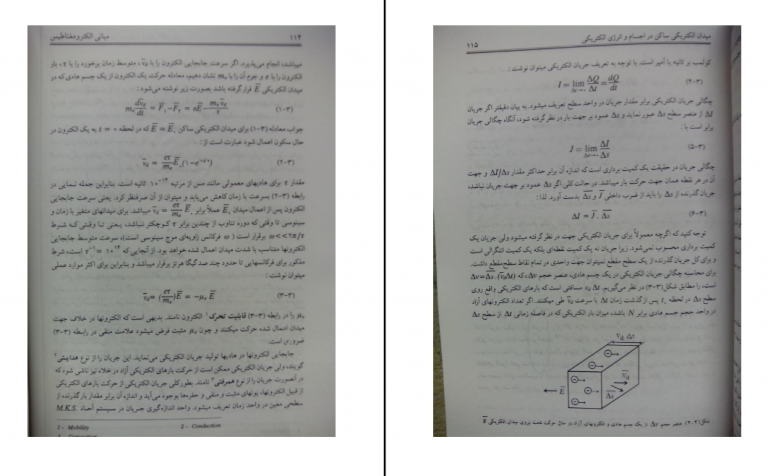 ۱۱۴ مبانی الکترومغناطیس
میباشند، انجام می‌پذیرد. اگر سرعت جابجایی الکترون را با v̄d، متوسط زمان برخورد را با τ، بار
الکترون را با e و جرم آن را با me نشان دهیم، معادله حرکت یک الکترون از یک جسم هادی که در
میدان الکتریکی E قرار گرفته باشد بصورت زیر نوشته می‌شود:
(۳-۱)
جواب معادله (۳-۱) برای میدان الکتریکی ساکن E = E که در لحظه t = ۰ به یک الکترون در
حال سکون اعمال شود عبارت است از:
(۳-۲)
مقدار τ برای هادیهای معمولی مانند مس از مرتبه ۱۰ ثانیه است، بنابراین جمله نمایی در
رابطه (۳-۲) بسرعت با زمان کاهش می‌یابد و میتوان از آن صرفنظر کرد. یعنی سرعت جابجایی
الکترون پس از اعمال میدان عملاً برابر میباشد. برای میدانهای متغیر با زمان و
سینوسی تا وقتی که دوره تناوب از چندین برابر τ کوچکتر نباشد، یعنی تا وقتی که شرط
برقرار است (ω فرکانس زاویه‌ای موج سینوسی است)، سرعت متوسط جابجایی
الکترونها متناسب با شدت میدان اعمال شده خواهد بود. از آنجایی که است، شرط
مذکور برای فرکانسهایی تا حدود چند صد گیگا هرتز برقرار میباشد و بنابراین برای اکثر موارد عملی
میتوان نوشت:
(۳-۳)
μe را در رابطه (۳-۳) قابلیت تحرک¹ الکترون نامند. بدیهی است که الکترونها در خلاف جهت
میدان اعمال شده حرکت میکنند و چون μe مثبت فرض میشود علامت منفی در رابطه (۳-۳)
ضروری است.
جابجایی الکترونها در هادیها تولید جریان الکتریکی می‌نماید. این جریان را از نوع هدایتی²
گویند، ولی جریان الکتریکی ممکن است از حرکت بارهای الکتریکی آزاد در خلاء نیز ناشی شود که
در آنصورت جریان را از نوع همرفتی³ نامند. بطور کلی جریان الکتریکی از حرکت بارهای الکتریکی
از قبیل الکترونها، یونهای مثبت و منفی و حفره‌ها بوجود می‌آید و اندازه آن برابر مقدار بار گذرنده از
سطحی معین در واحد زمان تعریف میشود. واحد اندازه‌گیری جریان در سیستم آحاد M.K.S.
1 - Mobility 2 - Conduction
میدان الکتریکی ساکن در اجسام و انرژی الکتریکی ۱۱۵
کولمب بر ثانیه یا آمپر است. با توجه به تعریف جریان الکتریکی میتوان نوشت:
(۳-۴)
چگالی جریان الکتریکی برابر مقدار جریان در واحد سطح تعریف میشود. به بیان دقیقتر اگر جریان
ΔI از عنصر سطح Δs عبور نماید و Δs عمود بر جهت بار در نظر گرفته شود، آنگاه چگالی جریان
برابر است با:
(۳-۵)
چگالی جریان در حقیقت یک کمیت برداری است که اندازه آن برابر حداکثر مقدار ΔI/Δs و جهت
آن در هر نقطه همان جهت حرکت بار میباشد. در حالت کلی اگر Δs عمود بر جهت جریان نباشد،
جریان گذرنده از Δs را باید از ضرب داخلی J و Δs بدست آورد. لذا:
ΔI = J . Δs (۳-۶)
توجه کنید که اگرچه معمولاً برای جریان الکتریکی جهت در نظر گرفته میشود ولی جریان یک
کمیت برداری محسوب نمی‌شود. زیرا جریان نه یک کمیت نقطه‌ای بلکه یک کمیت انتگرالی است
و برای کل جریان گذرنده از یک سطح مقطع نمیتوان جهت واحدی در تمام نقاط سطح مقطع داشت.
برای محاسبه چگالی جریان الکتریکی در یک جسم هادی، عنصر حجم Δv که
است، را مطابق شکل (۳-۲) در نظر می‌گیریم. مسافتی است که بارهای الکتریکی واقع روی
سطح Δs در لحظه t، پس از گذشت زمان Δt با سرعت طی میکنند. اگر تعداد الکترونهای آزاد
در واحد حجم جسم هادی برابر N باشد، میزان بار الکتریکی که در فاصله زمانی Δt از سطح Δs